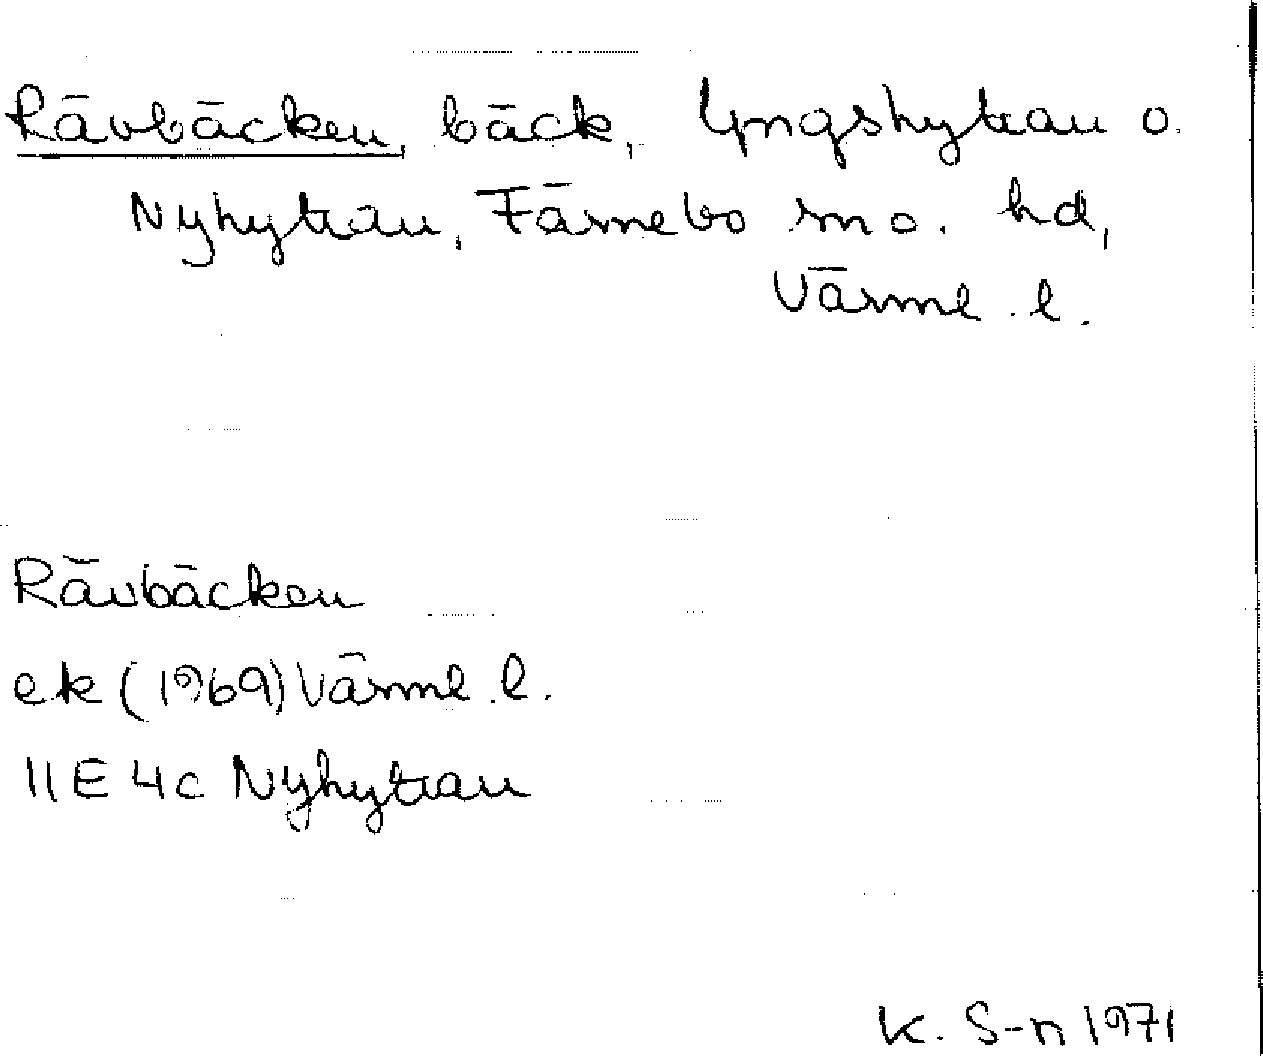 Rävbäcken, bäck, Yngshyttan o.
Nyhyttan, Färnebo sn o. hd,
Värml. l.
Rävbäcken
ek (1969) Värml. l.
11E 4c Nyhyttan
K. S-n 1971